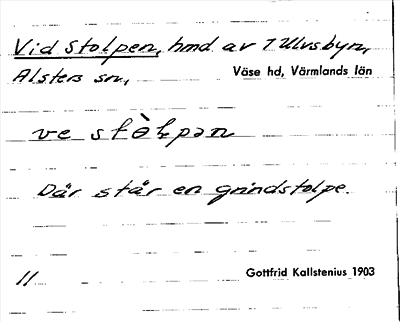 Vid Stolpen, hmd av 1 Ulvsbyn,
Alsters sn, Väse hd, Värmlands län
ve stòɫpən
Där står en grindstolpe.
11 Gottfrid Kallstenius 1903